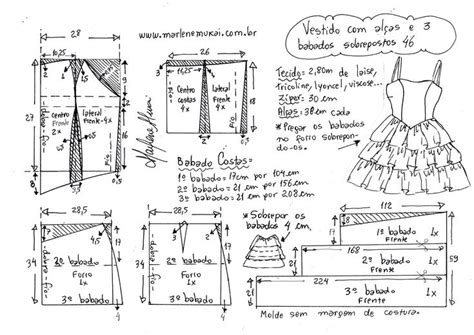 www.marlenemukai.com.br
Vestido com alças e 3
babados sobrepostos 46
Tecido = 2,80m de laise,
Tricoline, lyoncel, viscose...
Zíper = 30 cm
Alças = 38cm cada
* Pregar os babados
no forro sobrepon-
do-os.
28
10,25
27
16
centro
frente
2x
lateral
frente 4x
26
10,25
Centro
costas
4x
fio
Babado Costas =
1º babado = 17cm por 104cm
2º babado = 21 cm por 156cm.
3º babado = 21 cm por 208cm.
28,5
4,5
17
34
dobra - fio
2º babado
Forro
1x
3º babado
4
28,5
17
34
2º babado
Forro
1x
3º babado
4
* Sobrepor os
babados
4 cm.
112
18
1º babado 1x
Frente
17
168
2º babado 1x
Frente
21
59
224
3º babado 1x
Frente
21
Molde sem margem de costura.